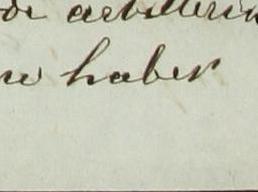 de artilleria
haber